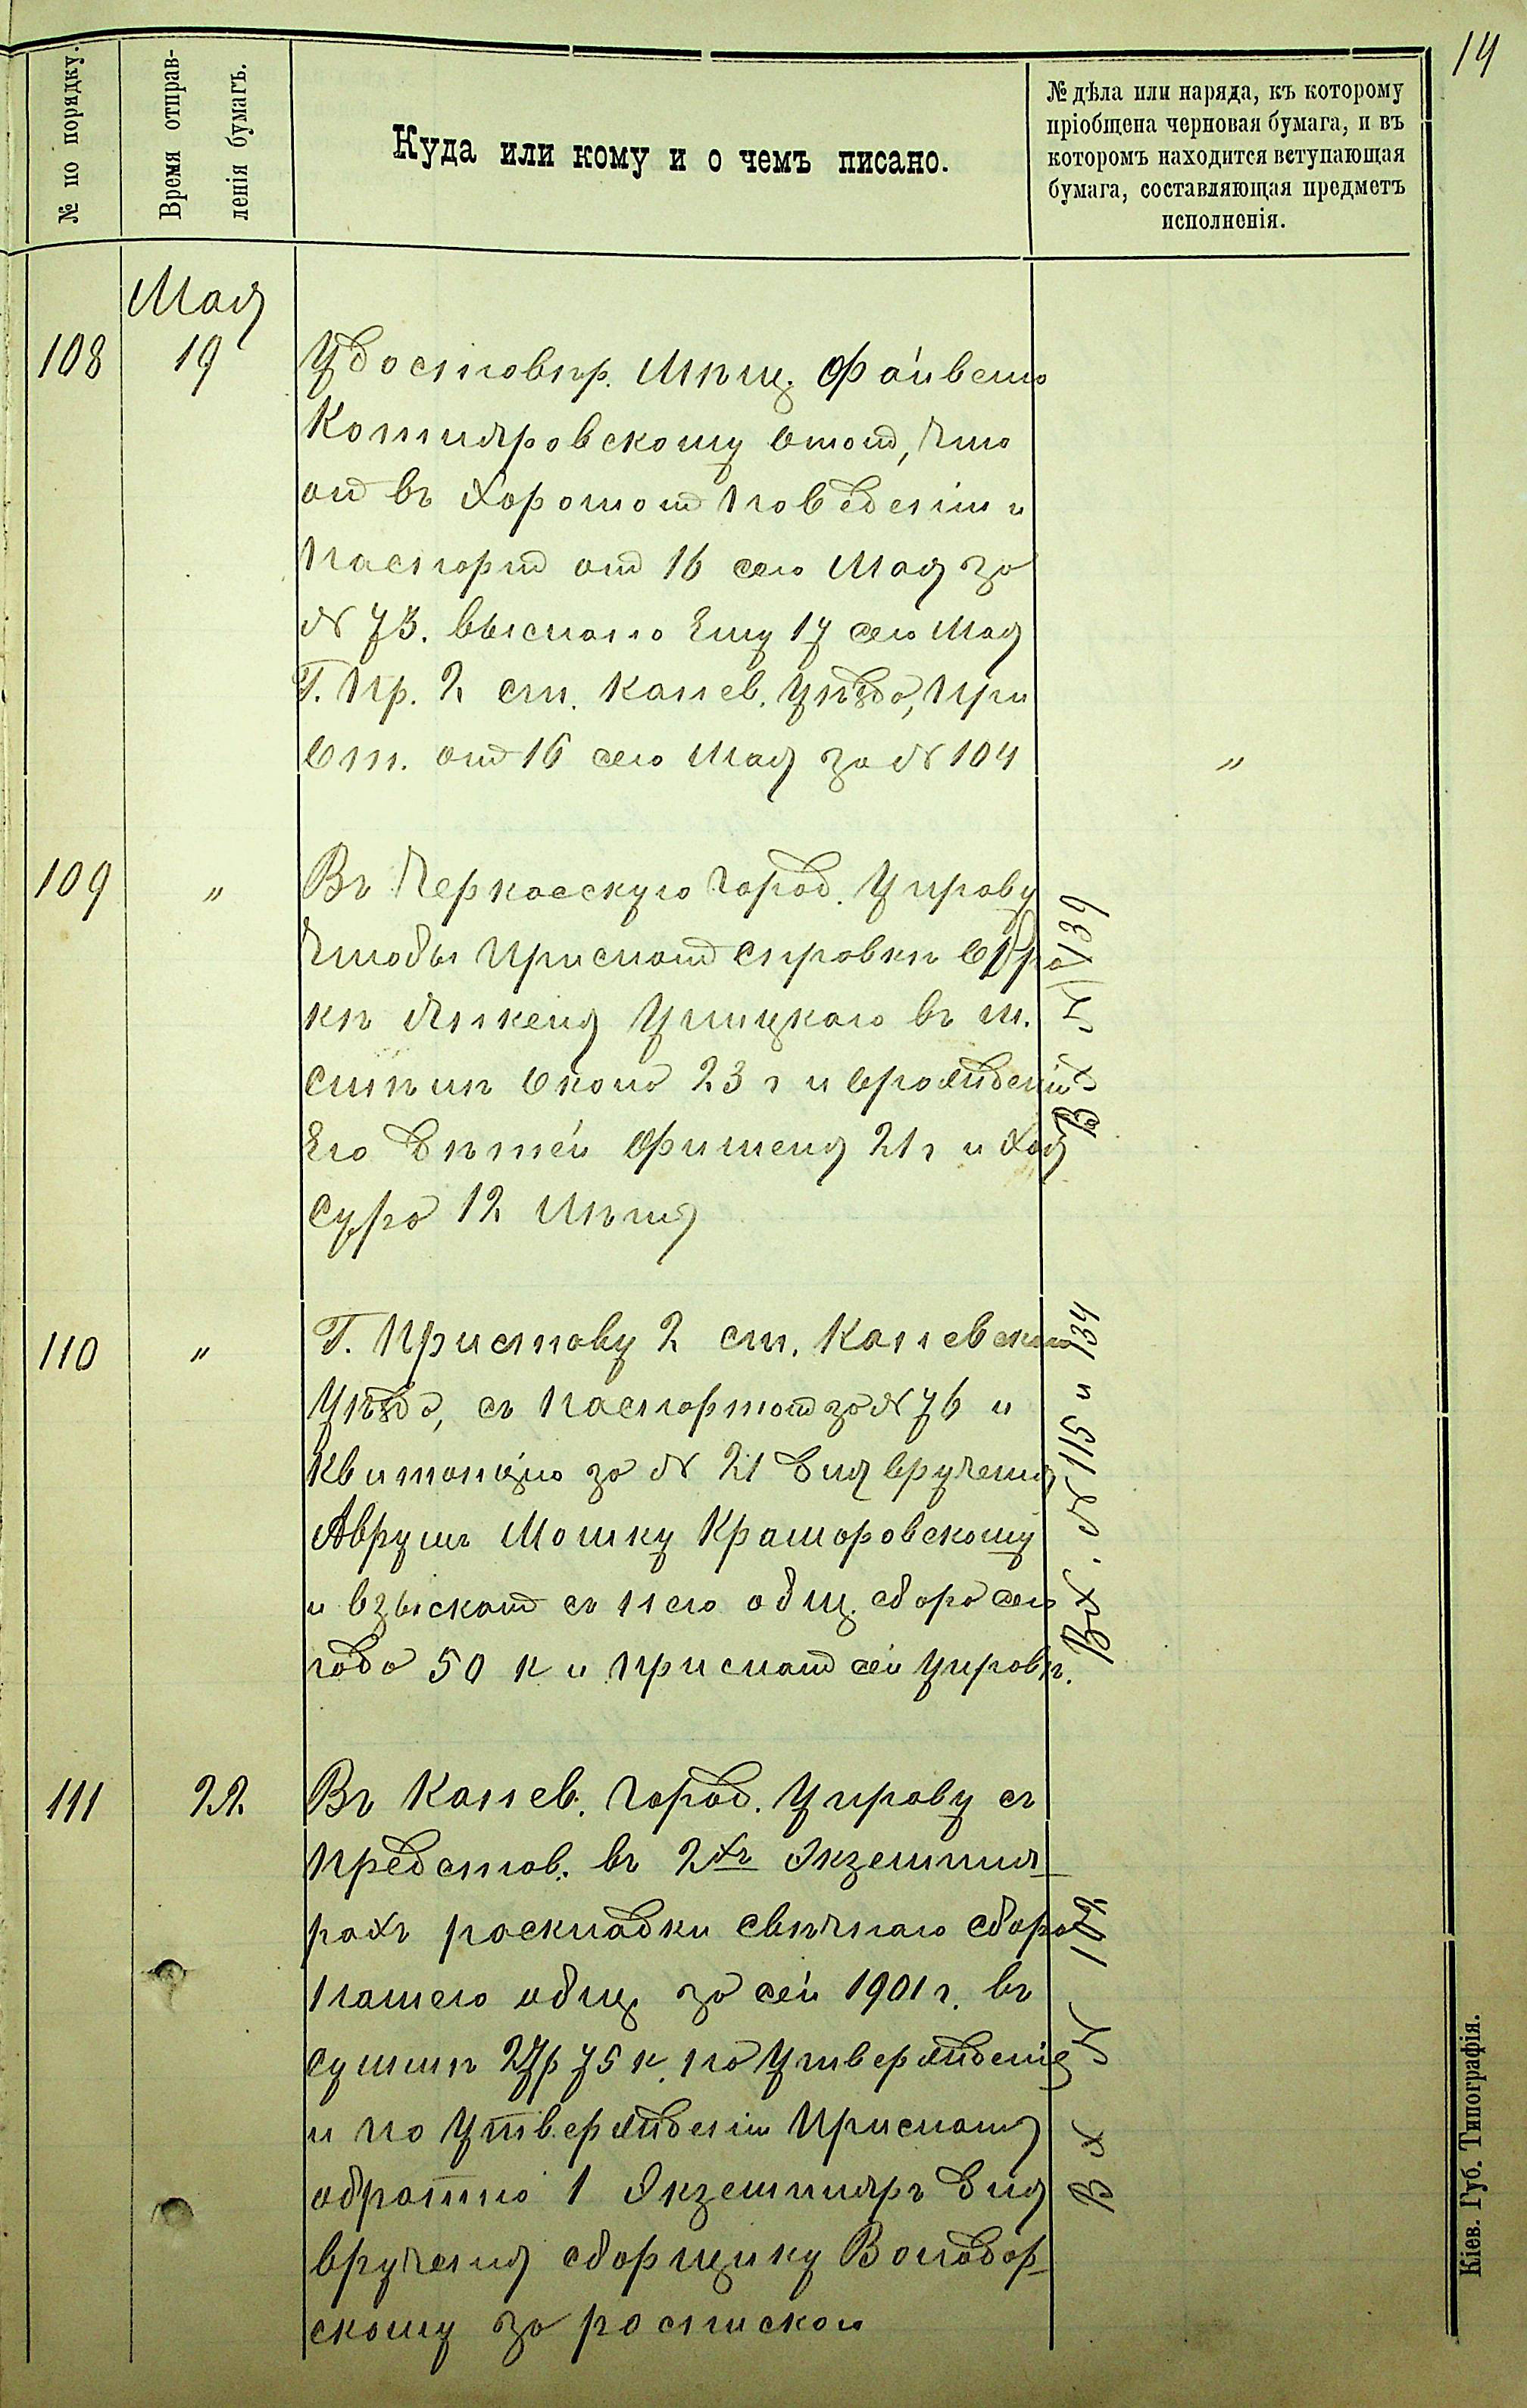 14
№ по порядку.
Время отправ-
ленія бумагъ.
Куда или кому и о чемъ писано.
№ дѣла или наряда, къ которому
пріобщена черновая бумага, и въ
которомъ находится вступающая
бумага, составляющая предметъ
исполненія.
Мая
108 19 Удостовѣр. Мѣщ. Файвелю
Котляровскому о томъ, что
онъ въ хорошомъ поведеніи и
паспортъ отъ 16 сего Мая за
№ 73. выслано Ему 17 сего Мая
Г. Пр. 2 ст. Канев. Уѣзда, при
от. отъ 16 сего Мая за № 104 "
109 " Въ Черкасскую Город. Управу
Чтобы прислать справки о бра
кѣ Янкеля Улицкаго въ м.
Смѣлѣ около 23 г и о рожденіи
Его дѣтей Фишеля 21 г и Хая
Сура 12 лѣтъ
Вх № 139
110 " Г. Приставу 2 ст. Каневского
Уѣзда, съ паспортомъ за № 76 и
квитанцію за № 21 для врученія
Аврумъ Мошку Краморовскому
и взыскать съ него общ. сбора сего
года 50 к и прислать сей Управѣ.
Вх. № 115 и 134
111 22 Въ Канев. Город. Управу съ
представ. въ 2хъ Экземпля-
рахъ раскладки свѣчнаго сбора
нашего общ. за сей 1901 г. въ
суммѣ 27р 75 к. по Утвержденіе
и по Утвержденіи прислать
обратно 1 Экземпляръ для
врученія сборщику Володар-
скому за роспискою
Вх № 109
Кіев. Губ. Типографія.